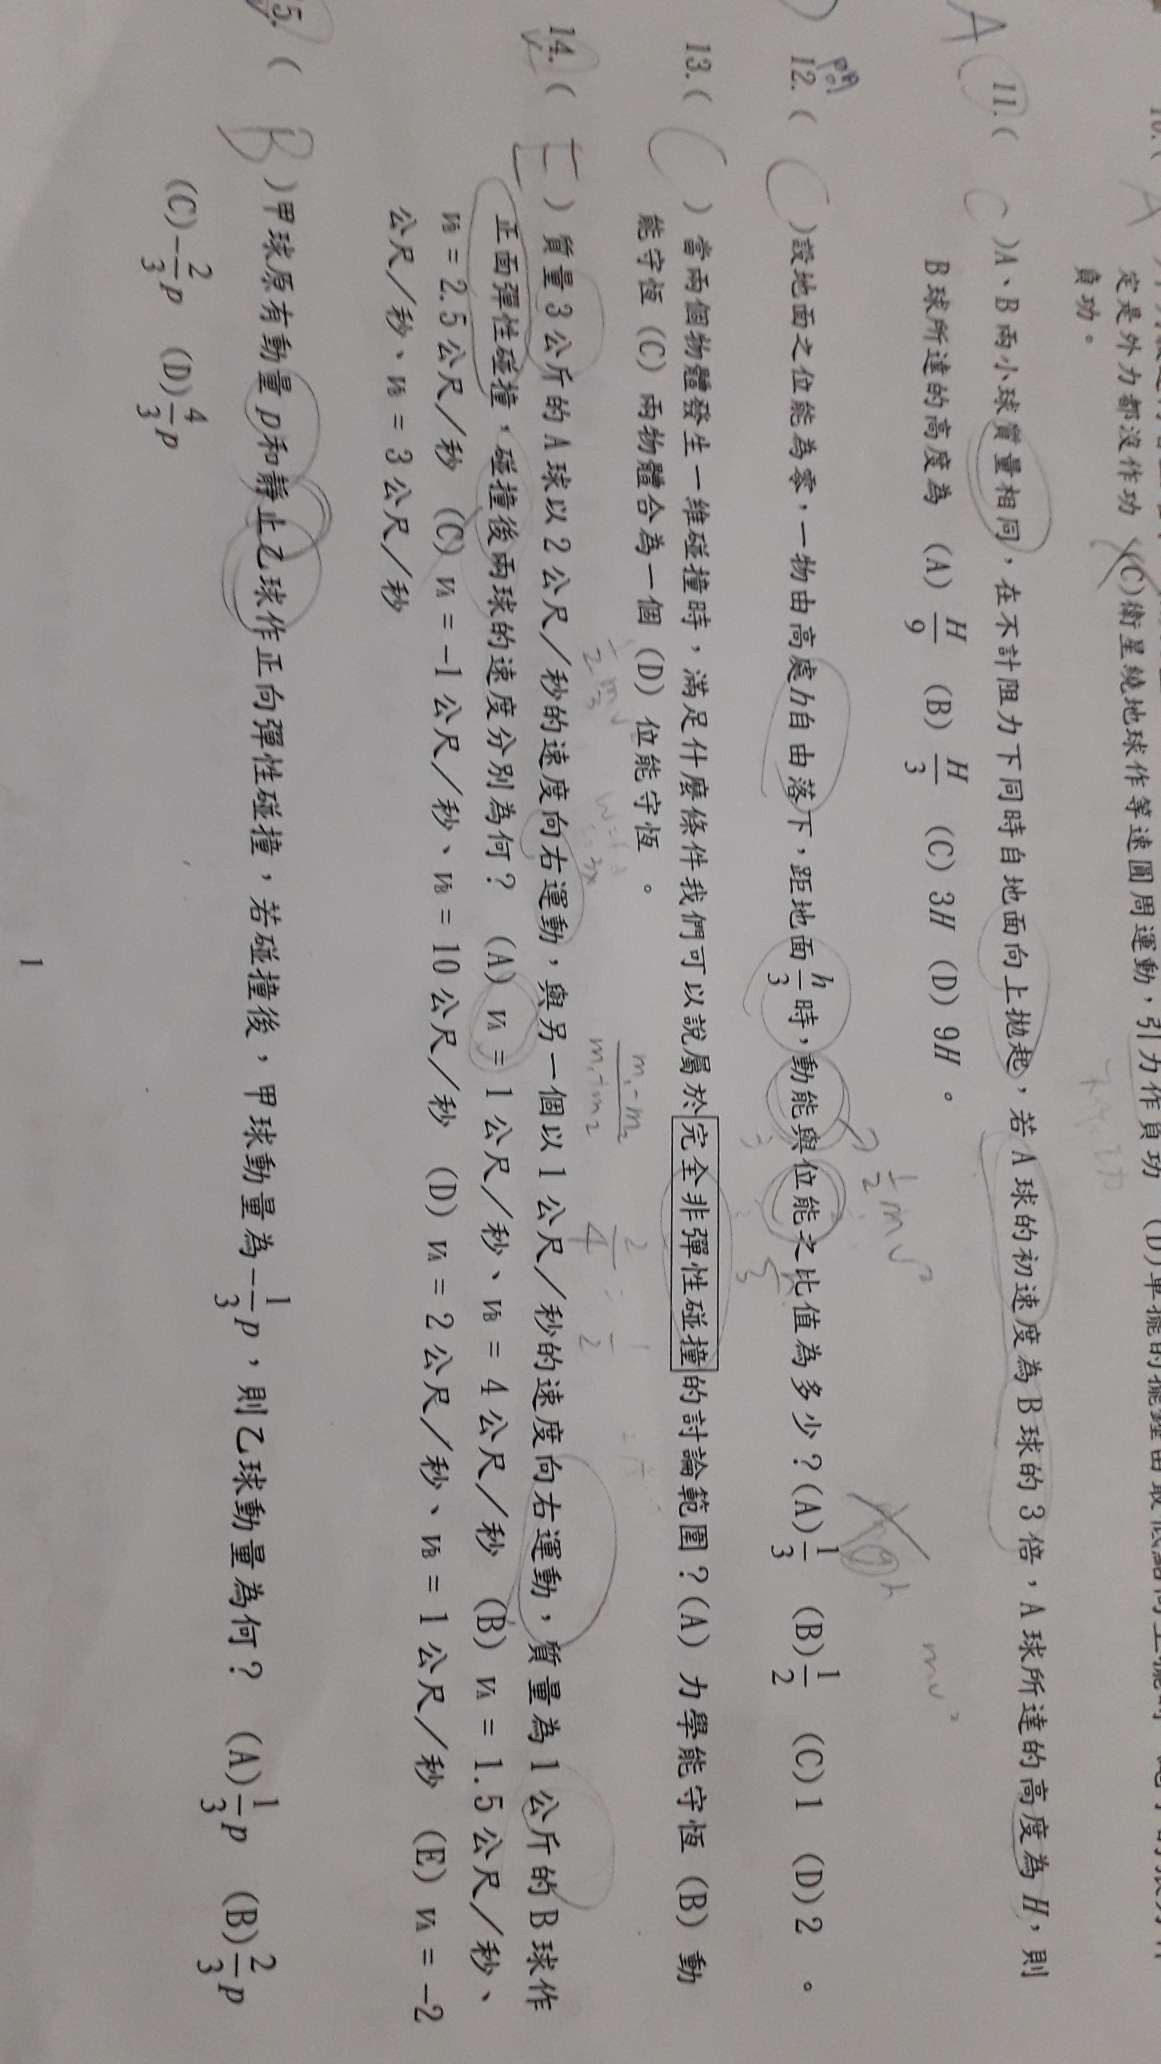 定是外力都沒作功 (C)衛星繞地球作等速圓周運動，引力作負功
負功。
A 11.( C )A、B兩小球質量相同，在不計阻力下同時自地面向上拋起，若A球的初速度為B球的3倍，A球所達的高度為H，則
B球所達的高度為 (A) H/9 (B) H/3 (C) 3H (D) 9H 。
mv²
½mv²
12.( C )設地面之位能為零，一物由高處h自由落下，距地面 h/3 時，動能與位能之比值為多少？(A) 1/3 (B) 1/2 (C)1 (D)2 。
13.( C ) 當兩個物體發生一維碰撞時，滿足什麼條件我們可以說屬於完全非彈性碰撞的討論範圍？(A) 力學能守恆 (B) 動
能守恆 (C) 兩物體合為一個 (D) 位能守恆 。
m₁-m₂
m₁+m₂
14.( E ) 質量3公斤的A球以2公尺／秒的速度向右運動，與另一個以1公尺／秒的速度向右運動，質量為1公斤的B球作
正面彈性碰撞，碰撞後兩球的速度分別為何？ (A) vA = 1公尺／秒、vB = 4公尺／秒 (B) vA = 1.5公尺／秒、
vB = 2.5公尺／秒 (C) vA = -1公尺／秒、vB = 10公尺／秒 (D) vA = 2公尺／秒、vB = 1公尺／秒 (E) vA = -2
公尺／秒、vB = 3公尺／秒
5.( B )甲球原有動量p和靜止乙球作正向彈性碰撞，若碰撞後，甲球動量為-1/3 p，則乙球動量為何？ (A) 1/3 p (B) 2/3 p
(C)-2/3 p (D) 4/3 p
1